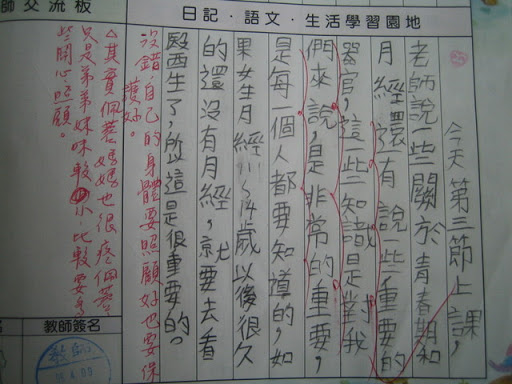 日記·語文·生活學習園地
今天第三節上課，
老師說一些關於青春期和
月經還有說一些重要的
器官，這些知識是對我
們來說，是非常的重要，
是每一個人都要知道的，如
果女生月經11~14歲以後很久
的還沒有月經，就要去看
醫生了，所以這是很重要的。
沒錯，自己的身體要照顧好也要保
護好。
師交流板
△其實佩蓉媽媽也很疼佩蓉，
只是弟弟妹妹較小，比較要多
些關心照顧。
教師簽名